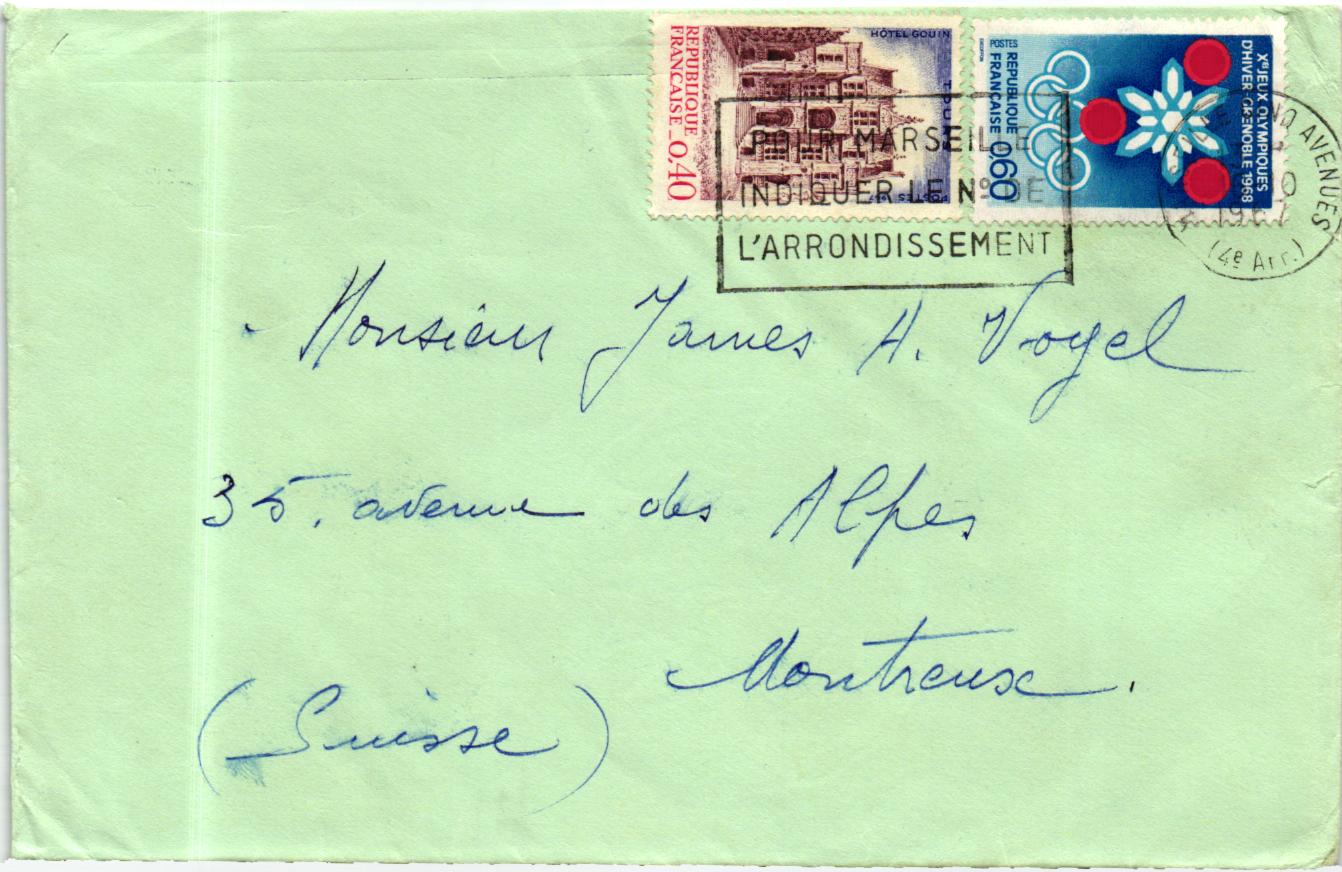 HÔTEL GOUIN
REPUBLIQUE
FRANÇAISE_0,40
POSTES 1967
POSTES
REPUBLIQUE
FRANÇAISE 0,60
XES JEUX OLYMPIQUES
D'HIVER-GRENOBLE 1968
POUR MARSEILLE
INDIQUER LE Nº DE
L'ARRONDISSEMENT
AVENUES
(4e Arr.)
Monsieur James A. Vogel
35, avenue des Alpes
Montreux.
(Suisse)